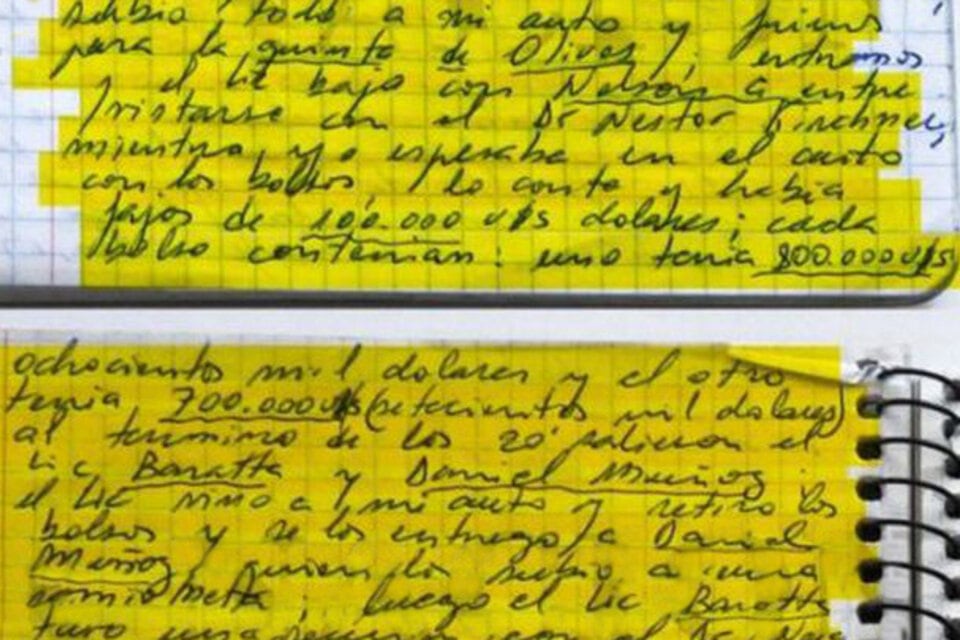 subio todo a mi auto y fuimos
para la quinta de Olivos; entramos
y el lic bajo con Nelson a entre
vistarse con el Dr Nestor Kirchner,
mientras yo esperaba en el auto
con los bolsos, lo conte y habia
fajos de 100.000 U$S dolares; cada
bolso contenian: uno tenia 800.000 U$S
ochocientos mil dolares y el otro
tenia 700.000 U$S (setecientos mil dolares)
al termino de los 20' salieron el
Lic Baratta y Daniel Muñoz;
el Lic vino a mi auto y retiro los
bolsos y se los entrego a Daniel
Muñoz quien los subio a una
camioneta; luego el Lic Baratta
tuvo una reunion con el Dr